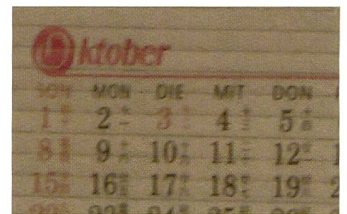 Oktober
SON MON DIE MIT DON
1 2 3 4 5
8 9 10 11 12
15 16 17 18 19
22 23 24 25 26